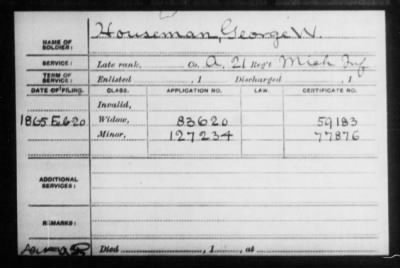 NAME OF SOLDIER: Houseman, George W.
SERVICE: Late rank, Co. A, 21 Reg't Mich Inf
TERM OF SERVICE: Enlisted , 1 Discharged , 1
DATE OF FILING. CLASS. APPLICATION NO. LAW. CERTIFICATE NO.
Invalid,
1865 Widow, 83620 59183
Minor, 127234 77876
ADDITIONAL SERVICES:
REMARKS:
Died , 1 , at